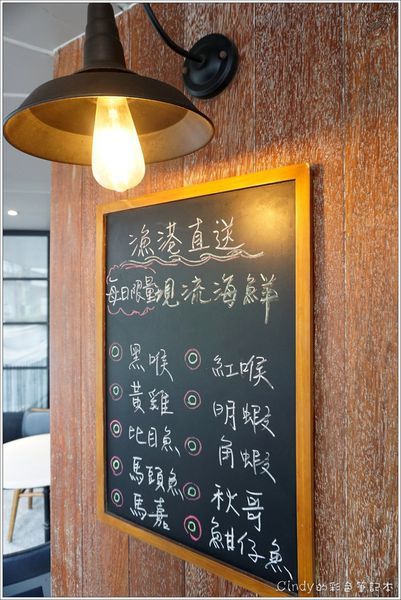 漁港直送
每日限量現流海鮮
黑喉
黃雞
比目魚
馬頭魚
馬嘉
紅喉
明蝦
角蝦
秋哥
魽仔魚
Cindy的彩色筆記本